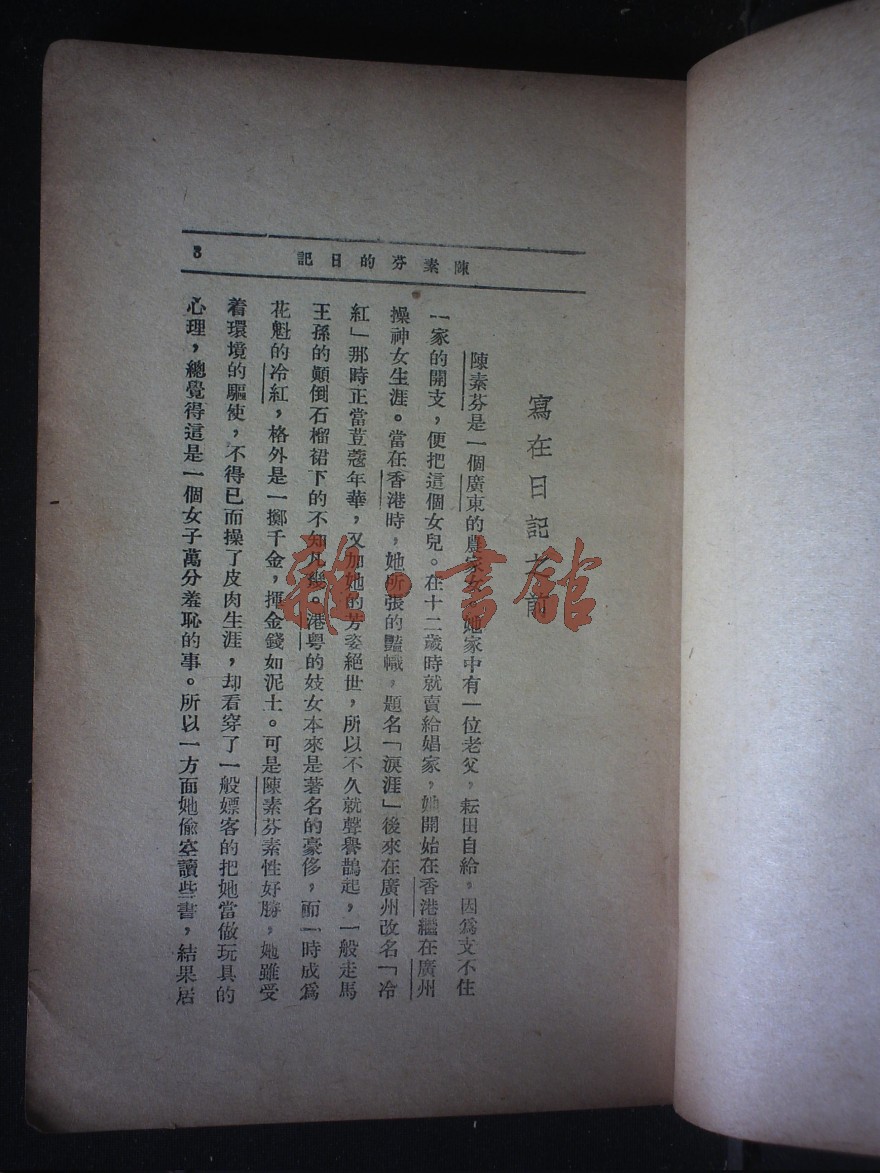 陳素芬的日記
3
寫在日記之前
陳素芬是一個廣東的農家女，她家中有一位老父，耘田自給，因爲支不住
一家的開支，便把這個女兒。在十二歲時就賣給娼家，她開始在香港繼在廣州
操神女生涯。當在香港時，她所張的豔幟，題名「淚涯」後來在廣州改名「冷
紅」那時正當荳蔻年華，又加她的芳姿絕世，所以不久就聲譽鵲起，一般走馬
王孫的顛倒石榴裙下的不知凡幾。港粤的妓女本來是著名的豪侈，而一時成爲
花魁的冷紅，格外是一擲千金，揮金錢如泥土。可是陳素芬素性好勝，她雖受
着環境的驅使，不得已而操了皮肉生涯，却看穿了一般嫖客的把她當做玩具的
心理，總覺得這是一個女子萬分羞恥的事。所以一方面她偷空讀些書，結果居
雜·書館